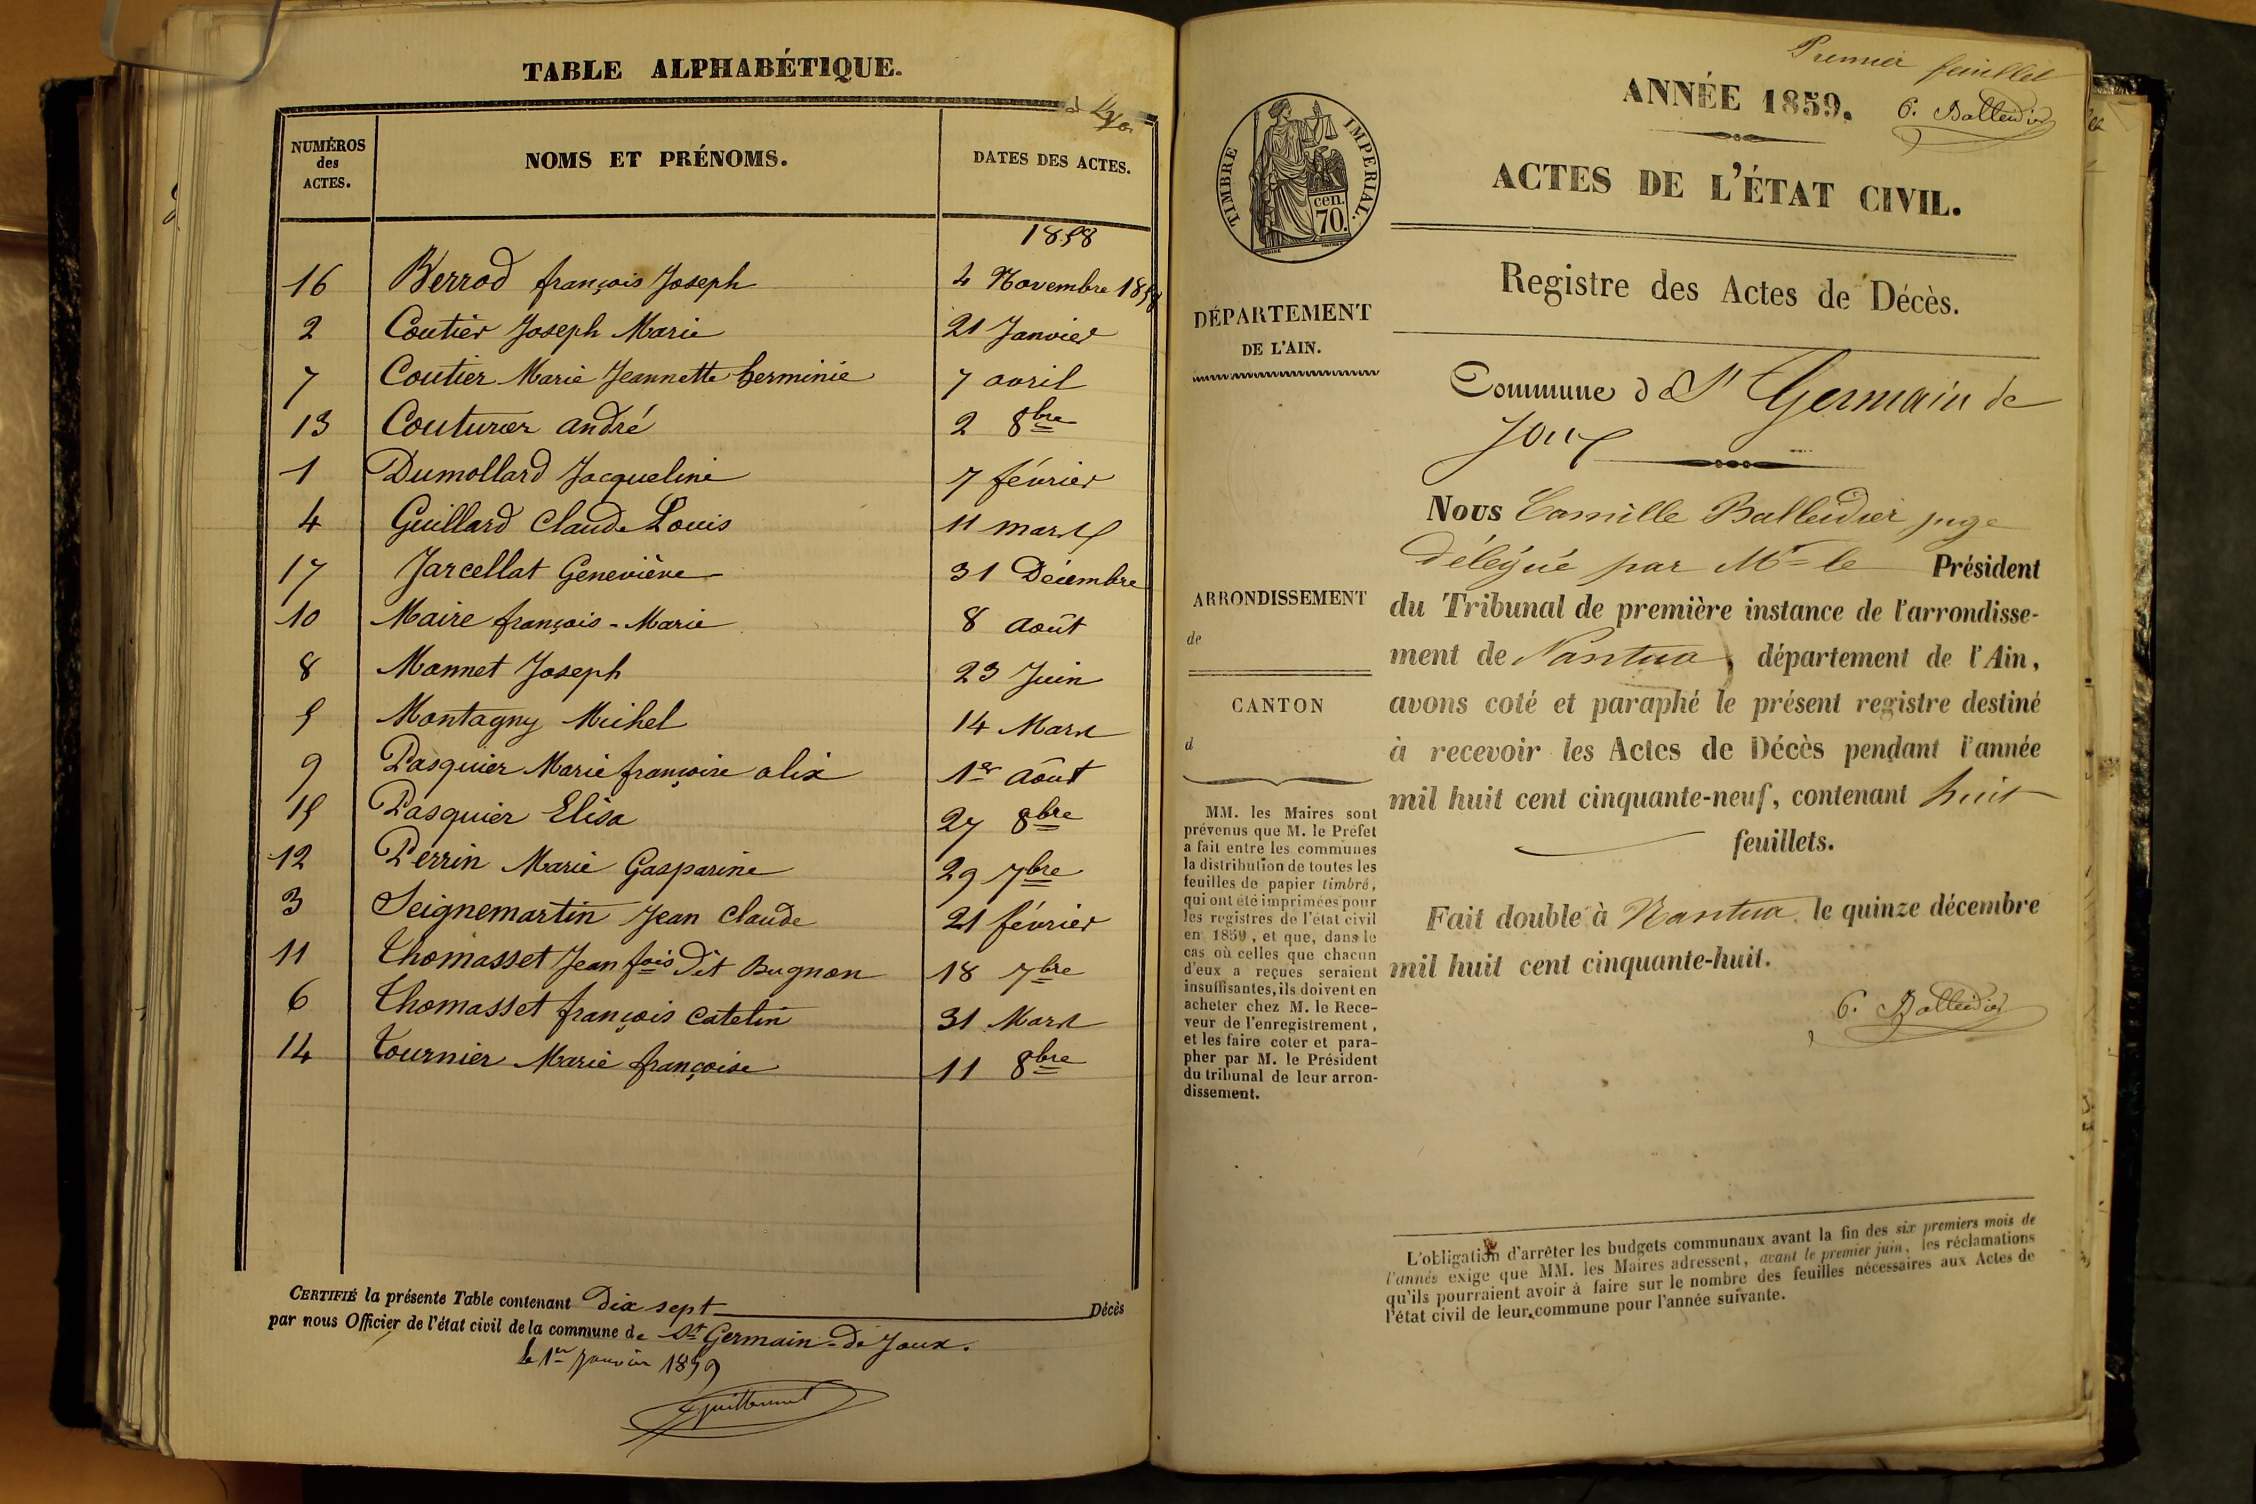 TABLE ALPHABÉTIQUE.
NUMÉROS
des
ACTES.
NOMS ET PRÉNOMS.
DATES DES ACTES.
1858
16 Berrod françois Joseph 4 Novembre 1858
2 Coutier Joseph Marie 21 Janvier
7 Coutier Marie Jeannette herminie 7 avril
13 Couturier andré 2 8bre
1 Dumollard Jacqueline 7 février
4 Guillard Claude Louis 11 mars
17 Jarcellat Geneviève 31 Décembre
10 Maire françois-Marie 8 août
8 Monnet Joseph 23 Juin
5 Montagny Michel 14 Mars
9 Pasquier Marie françoise alix 1er Août
15 Pasquier Elisa 27 8bre
12 Perrin Marie Gasparine 29 7bre
3 Seignemartin Jean Claude 21 février
11 Thomasset Jean fois Dit Bugnon 18 7bre
6 Thomasset françois Catelin 31 Mars
14 Tournier Marie françoise 11 8bre
CERTIFIÉ la présente Table contenant Dix sept Décès
par nous Officier de l'état civil de la commune de St Germain-de Joux.
le 1er Janvier 1859
Premier feuillet
ANNÉE 1859.
C. Balleidier
ACTES DE L'ÉTAT CIVIL.
TIMBRE IMPERIAL.
cen.
70.
Registre des Actes de Décès.
DÉPARTEMENT
DE L'AIN.
Commune d St Germain de
Joux
Nous Camille Balleidier juge
délégué par Mr le Président
du Tribunal de première instance de l'arrondisse-
ment de Nantua, département de l'Ain,
avons coté et paraphé le présent registre destiné
à recevoir les Actes de Décès pendant l'année
mil huit cent cinquante-neuf, contenant huit
feuillets.
Fait double à Nantua le quinze décembre
mil huit cent cinquante-huit.
C. Balleidier
ARRONDISSEMENT
de
CANTON
d
MM. les Maires sont
prévenus que M. le Préfet
a fait entre les communes
la distribution de toutes les
feuilles de papier timbré,
qui ont été imprimées pour
les registres de l'état civil
en 1859, et que, dans le
cas où celles que chacun
d'eux a reçues seraient
insuffisantes, ils doivent en
acheter chez M. le Rece-
veur de l'enregistrement,
et les faire coter et para-
pher par M. le Président
du tribunal de leur arron-
dissement.
L'obligation d'arrêter les budgets communaux avant la fin des six premiers mois de
l'année exige que MM. les Maires adressent, avant le premier juin, les réclamations
qu'ils pourraient avoir à faire sur le nombre des feuilles nécessaires aux Actes de
l'état civil de leur commune pour l'année suivante.